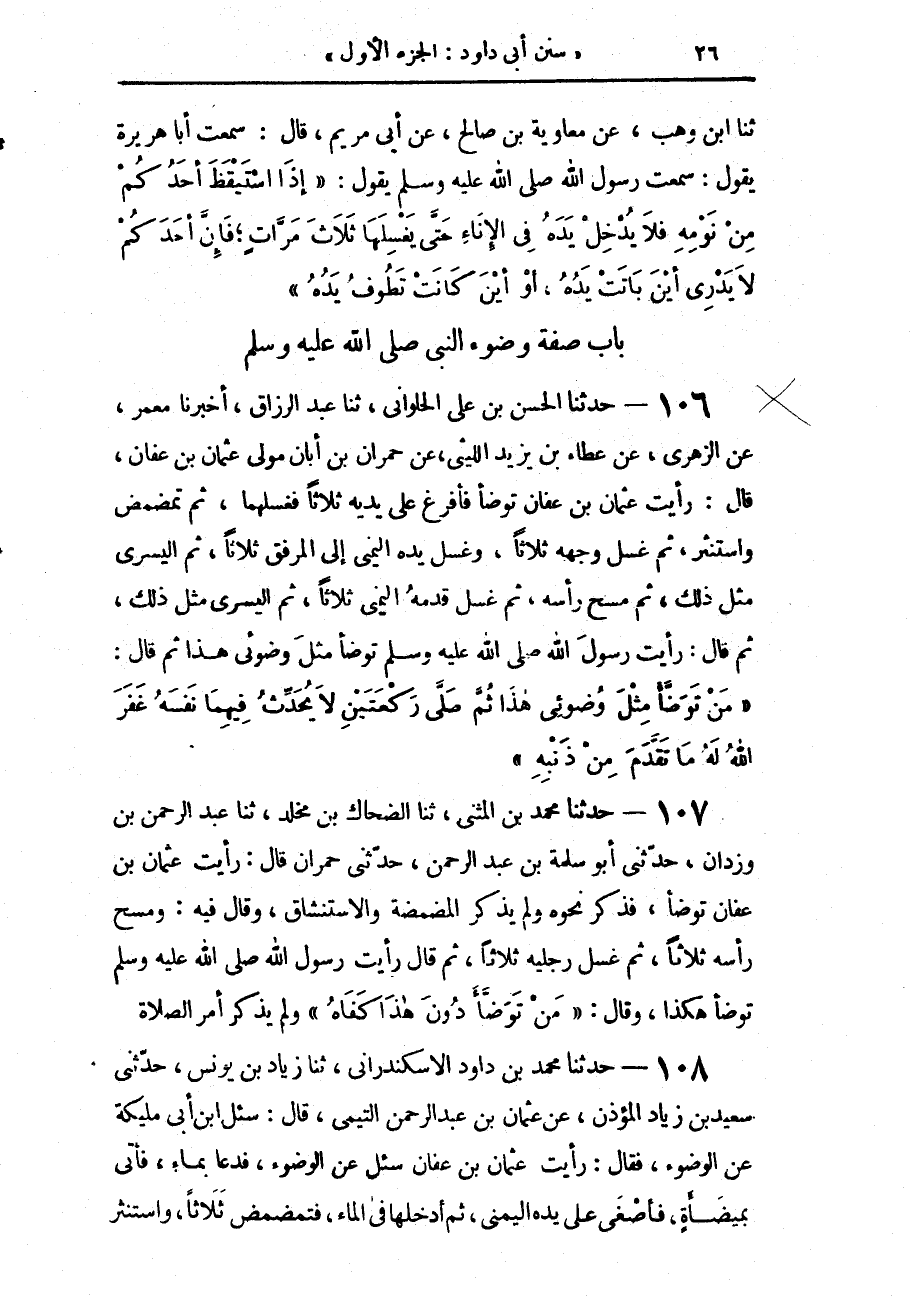 ٢٦ « سنن أبى داود : الجزء الأول »
ثنا ابن وهب ، عن معاوية بن صالح ، عن أبى مريم ، قال : سمعت أبا هريرة
يقول : سمعت رسول الله صلى الله عليه وسلم يقول : « إِذَا اسْتَيْقَظَ أحَدُ كُمْ
مِنْ نَوْمِهِ فلاَ يُدْخِلْ يَدَهُ فِى الإِنَاءِ حَتَّى يَغْسِلَهَا ثَلاَثَ مَرَّاتٍ ؛ فَإِنَّ أحَدَ كُمْ
لاَ يَدْرِى أيْنَ بَاتَتْ يَدُهُ ، أوْ أيْنَ كَانَتْ تَطُوفُ يَدُهُ »
باب صفة وضوء النبى صلى الله عليه وسلم
١٠٦ — حدثنا الحسن بن على الحلوانى ، ثنا عبد الرزاق ، أخبرنا معمر ،
عن الزهرى ، عن عطاء بن يزيد الليثى ، عن حمران بن أبان مولى عثمان بن عفان ،
قال : رأيت عثمان بن عفان توضأ فأفرغ على يديه ثلاثاً فغسلهما ، ثم تمضمض
واستنثر ، ثم غسل وجهه ثلاثاً ، وغسل يده اليمنى إلى المرفق ثلاثاً ، ثم اليسرى
مثل ذلك ، ثم مسح رأسه ، ثم غسل قدمهُ اليمنى ثلاثاً ، ثم اليسرى مثل ذلك ،
ثم قال : رأيت رسولَ الله صلى الله عليه وسلم توضأ مثلَ وضوئى هذا ثم قال :
« مَنْ تَوَضَّأَ مِثْلَ وُضوئِى هٰذَا ثُمَّ صَلَّى رَكْعَتَيْنِ لاَ يُحَدِّثُ فِيهِمَا نَفْسَهُ غَفَرَ
اللهُ لَهُ مَا تَقَدَّمَ مِنْ ذَنْبِهِ »
١٠٧ — حدثنا محمد بن المثنى ، ثنا الضحاك بن مخلد ، ثنا عبد الرحمن بن
وردان ، حدّثنى أبو سلمة بن عبد الرحمن ، حدّثنى حمران قال : رأيت عثمان بن
عفان توضأ ، فذكر نحوه ولم يذكر المضمضة والاستنشاق ، وقال فيه : ومسح
رأسه ثلاثاً ، ثم غسل رجليه ثلاثاً ، ثم قال رأيت رسول الله صلى الله عليه وسلم
توضأ هكذا ، وقال : « مَنْ تَوَضَّأَ دُونَ هٰذَا كَفَاهُ » ولم يذكر أمر الصلاة
١٠٨ — حدثنا محمد بن داود الاسكندرانى ، ثنا زياد بن يونس ، حدّثنى
سعيد بن زياد المؤذن ، عن عثمان بن عبد الرحمن التيمى ، قال : سئل ابن أبى مليكة
عن الوضوء ، فقال : رأيت عثمان بن عفان سئل عن الوضوء ، فدعا بماء ، فأتى
بميضَأةٍ ، فأصْغَى على يده اليمنى ، ثم أدخلها فى الماء ، فتمضمض ثَلَاثاً ، واستنثر